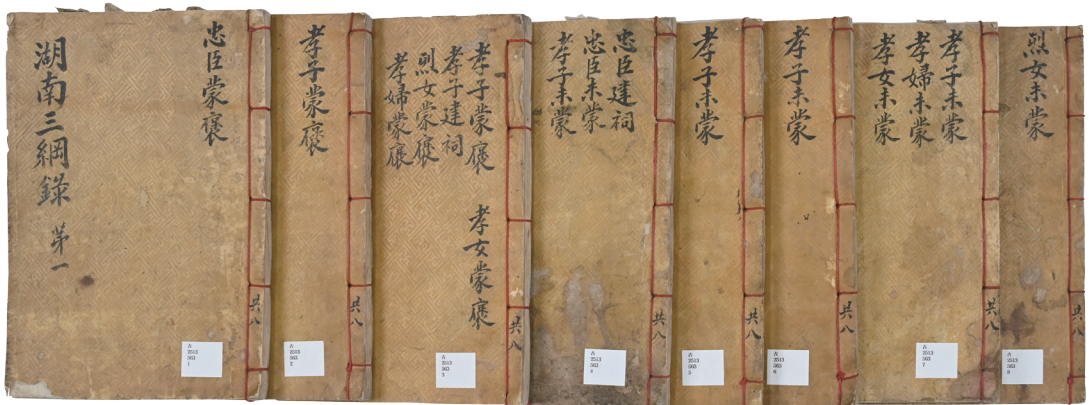 湖南三綱錄 第一
忠臣蒙褒
共八
古
2513
363
1
孝子蒙褒
共八
古
2513
363
2
孝子蒙褒 孝女蒙褒
孝子建祠
烈女蒙褒
孝婦蒙褒
共八
古
2513
363
3
忠臣建祠
忠臣未蒙
孝子未蒙
共八
古
2513
363
4
孝子未蒙
共八
古
2513
363
5
孝子未蒙
共八
古
2513
363
6
孝子未蒙
孝婦未蒙
孝女未蒙
共八
古
2513
363
7
烈女未蒙
共八
古
2513
363
8